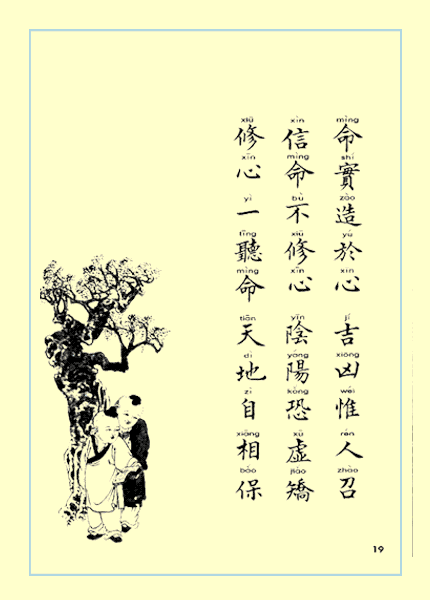 mìng shí zào yú xīn jí xiōng wéi rén zhào
命實造於心 吉凶惟人召
xìn mìng bù xiū xīn yīn yáng kǒng xū jiǎo
信命不修心 陰陽恐虛矯
xiū xīn yì tīng mìng tiān dì zì xiāng bǎo
修心一聽命 天地自相保
19